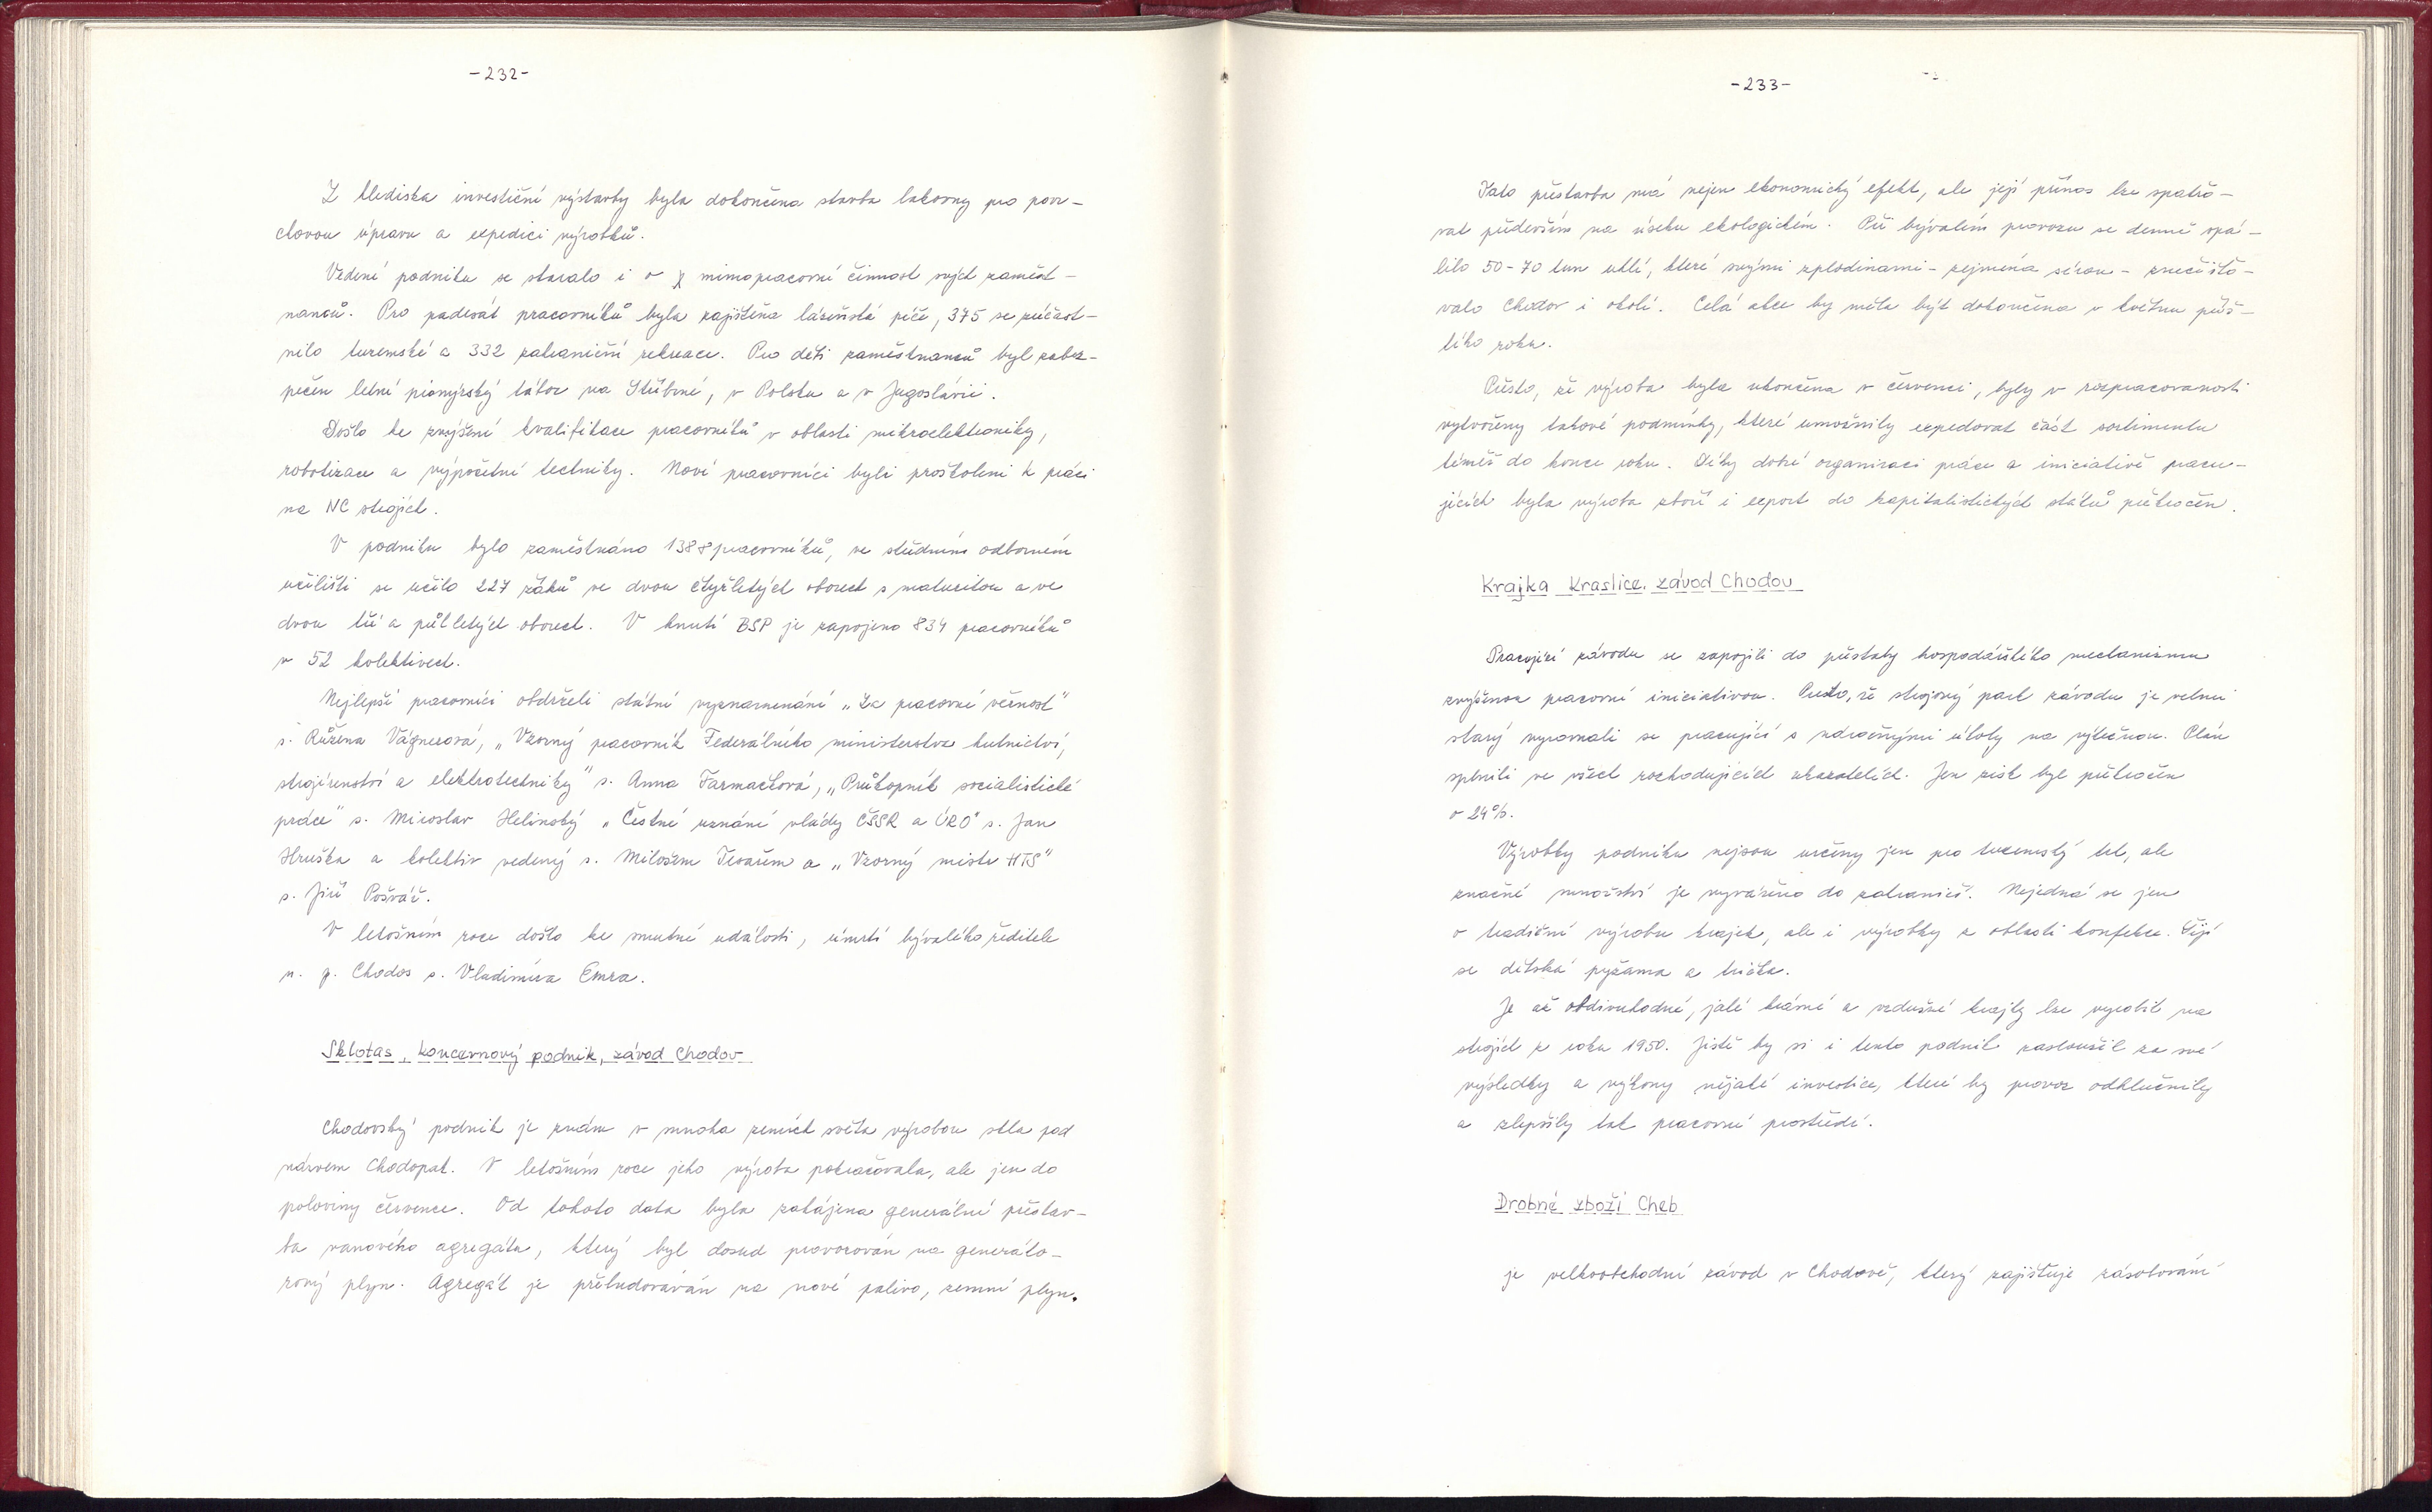 -232-
Z hlediska investiční výstavby byla dokončena stavba lakovny pro povr-
chovou úpravu a expedici výrobků.
Vedení podniku se staralo i o mimopracovní činnost svých zaměst-
nanců. Pro padesát pracovníků byla zajištěna lázeňská péče, 375 se zúčast-
nilo tuzemské a 332 zahraniční rekreace. Pro děti zaměstnanců byl zabez-
pečen letní pionýrský tábor na Stříbrné, v Polsku a v Jugoslávii.
Došlo ke zvýšení kvalifikace pracovníků v oblasti mikroelektroniky,
robotizace a výpočetní techniky. Noví pracovníci byli proškoleni k práci
na NC strojích.
V podniku bylo zaměstnáno 1388 pracovníků, ve středním odborném
učilišti se učilo 227 žáků ve dvou čtyřletých oborech s maturitou a ve
dvou tří a půlletých oborech. V hnutí BSP je zapojeno 834 pracovníků
v 52 kolektivech.
Nejlepší pracovníci obdrželi státní vyznamenání „Za pracovní věrnost"
s. Růžena Vágnerová, „Vzorný pracovník Federálního ministerstva hutnictví,
strojírenství a elektrotechniky" s. Anna Farmačková, „Průkopník socialistické
práce" s. Miroslav Helinský „Čestné uznání vlády ČSSR a ÚRO" s. Jan
Hruška a kolektiv vedený s. Milošem Tesařem a „Vzorný mistr HTS"
s. Jiří Pošvář.
V letošním roce došlo ke smutné události, úmrtí bývalého ředitele
n. p. Chodos s. Vladimíra Emra.
Sklotas, koncernový podnik, závod Chodov
Chodovský podnik je znám v mnoha zemích světa výrobou skla pod
názvem Chodopak. V letošním roce jeho výroba pokračovala, ale jen do
poloviny července. Od tohoto data byla zahájena generální přestav-
ba vanového agregátu, který byl dosud provozován na generáto-
rový plyn. Agregát je přebudováván na nové palivo, zemní plyn.
-233-
Tato přestavba má nejen ekonomický efekt, ale její přínos lze spatřo-
vat především na úseku ekologickém. Při bývalém provozu se denně spá-
lilo 50-70 tun uhlí, které svými zplodinami - zejména sírou - znečišťo-
valo Chodov i okolí. Celá akce by měla být dokončena v květnu příš-
tího roku.
Přesto, že výroba byla ukončena v červenci, byly v rozpracovanosti
vytvořeny takové podmínky, které umožnily expedovat část sortimentu
téměř do konce roku. Díky dobré organizaci práce a iniciativě pracu-
jících byla výroba zboží i export do kapitalistických států překročen.
Krajka Kraslice, závod Chodov
Pracující závodu se zapojili do přestavby hospodářského mechanismu
zvýšenou pracovní iniciativou. Přesto, že strojový park závodu je velmi
starý vyrovnali se pracující s náročnými úkoly na výtečnou. Plán
splnili ve všech rozhodujících ukazatelích. Jen zisk byl překročen
o 24%.
Výrobky podniku nejsou určeny jen pro tuzemský trh, ale
značné množství je vyváženo do zahraničí. Nejedná se jen
o tradiční výrobu krajek, ale i výrobky z oblasti konfekce. Šijí
se dětská pyžama a trička.
Je až obdivuhodné, jaké krásné a vzdušné krajky lze vyrobit na
strojích z roku 1950. Jistě by si i tento podnik zasloužil za své
výsledky a výkony nějaké investice, které by provoz odhlučnily
a zlepšily tak pracovní prostředí.
Drobné zboží Cheb
je velkoobchodní závod v Chodově, který zajišťuje zásobování